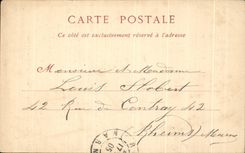 CARTE POSTALE
Ce côté est exclusivement réservé à l'adresse
Monsieur et Madame
Louis Hobert
42 Rue de Contray 42
Rheims Marne